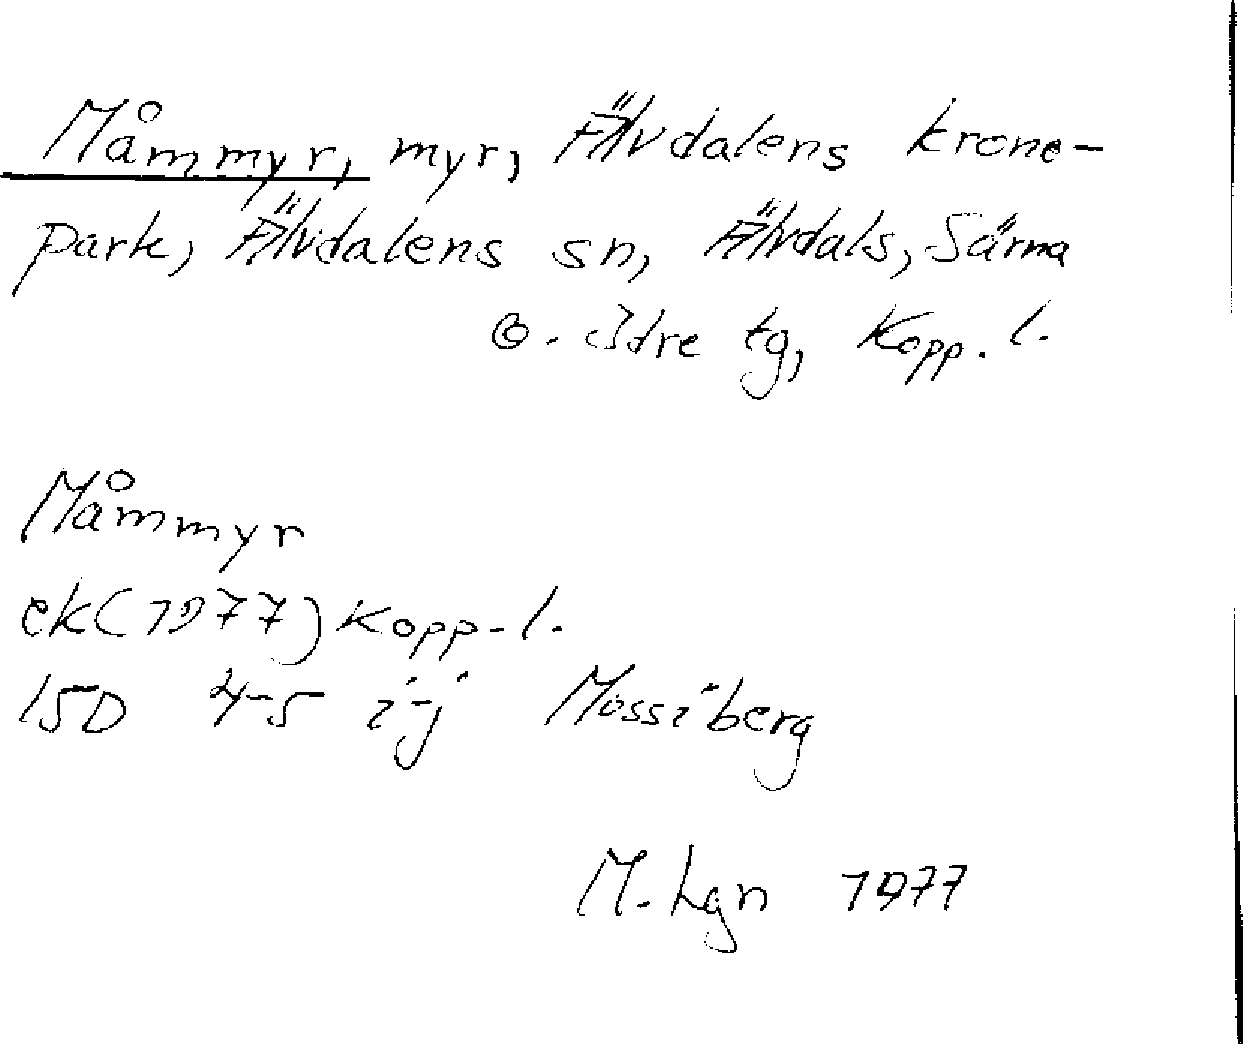 Måmmyr, myr, Älvdalens krono-
park, Älvdalens sn, Älvdals, Särna
o. Idre tg, Kopp. l.
Måmmyr
ek (1977) Kopp. l.
15D 4-5 i-j Mossiberg
M. Lgn 1977